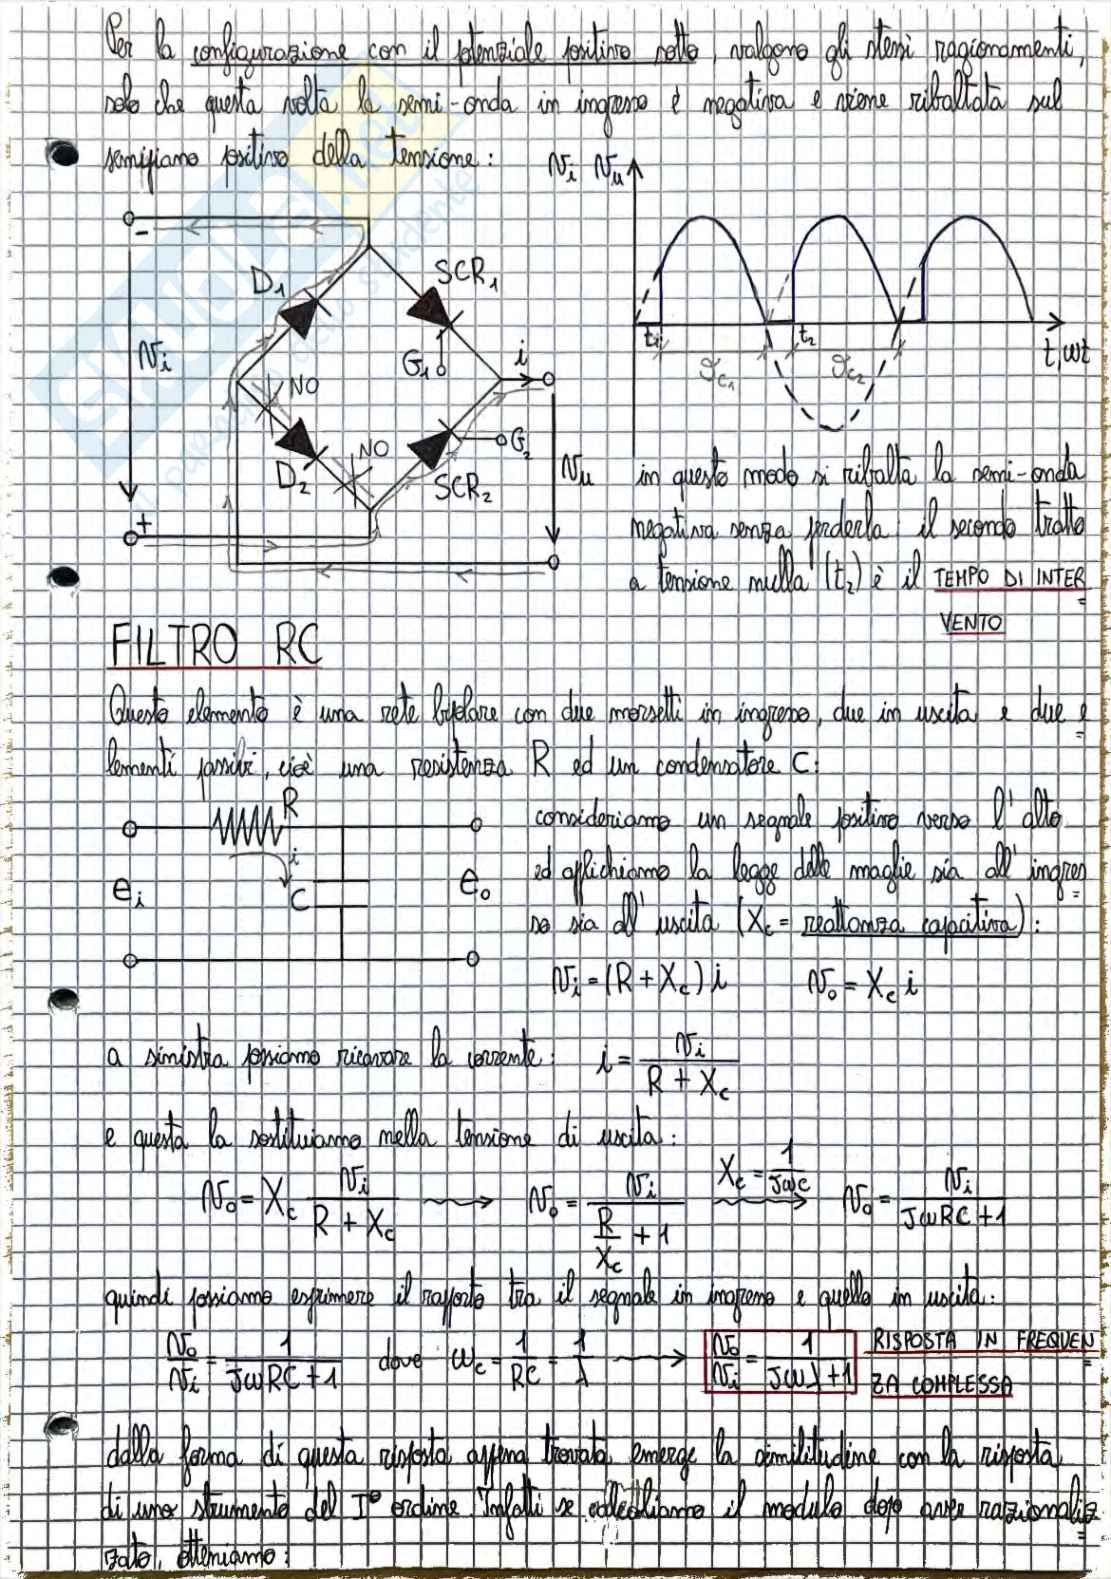 Per la configurazione con il potenziale positivo sotto, valgono gli stessi ragionamenti,
solo che questa volta la semi-onda in ingresso è negativa e viene ribaltata sul
semipiano positivo della tensione:
v_i v_u
-
D_1
SCR_1
v_i
G_1
i
t_1
t_2
t, ωt
𝒯_c1
𝒯_c2
NO
NO
G_2
D_2
SCR_2
v_u
+
in questo modo si ribalta la semi-onda
negativa senza perderla: il secondo tratto
a tensione nulla (t_2) è il TEMPO DI INTER
VENTO
FILTRO RC
Questo elemento è una rete bipolare con due morsetti in ingresso, due in uscita e due e
lementi passivi, cioè una resistenza R ed un condensatore C:
R
i
C
e_i
e_o
consideriamo un segnale positivo verso l'alto
ed applichiamo la legge delle maglie sia all'ingres
so sia all'uscita (X_c = reattanza capacitiva):
v_i = (R + X_c) i v_o = X_c i
a sinistra possiamo ricavare la corrente: i = v_i / (R + X_c)
e questa la sostituiamo nella tensione di uscita:
v_o = X_c v_i / (R + X_c) → v_o = v_i / (R/X_c + 1) X_c = 1/(jωC) → v_o = v_i / (jωRC + 1)
quindi possiamo esprimere il rapporto tra il segnale in ingresso e quello in uscita:
v_o/v_i = 1/(jωRC + 1) dove ω_c = 1/RC = 1/λ → v_o/v_i = 1/(jωλ + 1) RISPOSTA IN FREQUEN
ZA COMPLESSA
dalla forma di questa risposta appena trovata emerge la similitudine con la risposta
di uno strumento del I° ordine. Infatti se calcoliamo il modulo dopo aver razionaliz
zato, otteniamo: